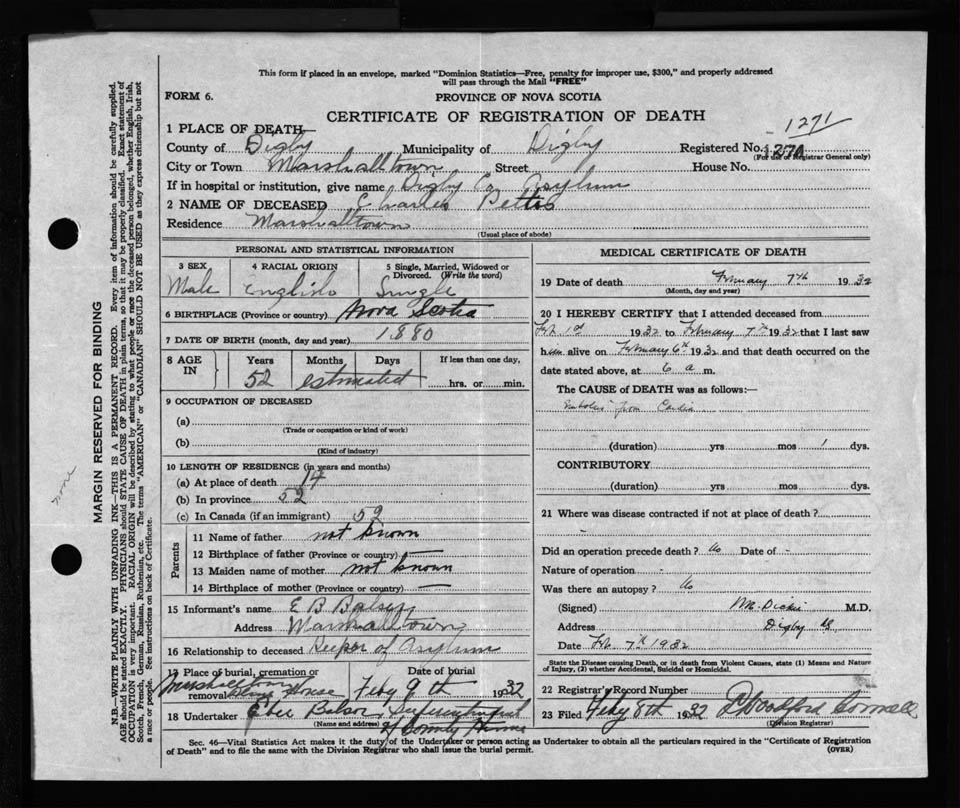 This form if placed in an envelope, marked "Dominion Statistics—Free, penalty for improper use, $300," and properly addressed
will pass through the Mail "FREE"
FORM 6.
PROVINCE OF NOVA SCOTIA
CERTIFICATE OF REGISTRATION OF DEATH
1271
1 PLACE OF DEATH
County of Digby Municipality of Digby Registered No. 1270
(For use of Registrar General only)
City or Town Marshalltown Street House No.
If in hospital or institution, give name Digby Co Asylum
2 NAME OF DECEASED Charles Pettis
Residence Marshalltown
(Usual place of abode)
PERSONAL AND STATISTICAL INFORMATION
3 SEX 4 RACIAL ORIGIN 5 Single, Married, Widowed or Divorced. (Write the word)
Male English Single
6 BIRTHPLACE (Province or country) Nova Scotia
7 DATE OF BIRTH (month, day and year) 1880
8 AGE IN Years Months Days If less than one day,
52 estimated hrs. or min.
9 OCCUPATION OF DECEASED
(a)
(Trade or occupation or kind of work)
(b)
(Kind of industry)
10 LENGTH OF RESIDENCE (in years and months)
(a) At place of death 14
(b) In province 52
(c) In Canada (if an immigrant) 52
Parents
11 Name of father not known
12 Birthplace of father (Province or country) —
13 Maiden name of mother not known
14 Birthplace of mother (Province or country) —
15 Informant's name E B Balser
Address Marshalltown
16 Relationship to deceased Keeper of Asylum
17 Place of burial, cremation or removal Date of burial
Marshalltown House Feby 9th 1932
18 Undertaker Balser Superintendent
(Name and address) of County Home
MEDICAL CERTIFICATE OF DEATH
19 Date of death February 7th 1932
(Month, day and year)
20 I HEREBY CERTIFY that I attended deceased from
Feb 1st 1932 to February 7th 1932 that I last saw
him alive on February 6th 1932 and that death occurred on
date stated above, at 6 a m.
The CAUSE of DEATH was as follows:—
from
(duration) yrs mos 1 dys.
CONTRIBUTORY
(duration) yrs mos dys.
21 Where was disease contracted if not at place of death?
Did an operation precede death? No Date of -
Nature of operation -
Was there an autopsy? No
(Signed) Dickie M.D.
Address Digby NS
Date Feb. 7th 1932
State the Disease causing Death, or in death from Violent Causes, state (1) Means and Nature
of Injury, (2) whether Accidental, Suicidal or Homicidal.
22 Registrar's Record Number
23 Filed Feby 8th 1932 Woodford Cornell
(Division Registrar)
Sec. 46—Vital Statistics Act makes it the duty of the Undertaker or person acting as Undertaker to obtain all the particulars required in the "Certificate of Registration
of Death" and to file the same with the Division Registrar who shall issue the burial permit. (OVER)
MARGIN RESERVED FOR BINDING
N.B.—WRITE PLAINLY WITH UNFADING INK—THIS IS A PERMANENT RECORD. Every item of information should be carefully supplied.
AGE should be stated EXACTLY. PHYSICIANS should STATE CAUSE OF DEATH in plain terms, so that it may be properly classified. Exact statement of
OCCUPATION is very important. RACIAL ORIGIN will be described by stating to what people or race the deceased person belonged, whether English, Irish,
Scotch, French, German, Russian, Ruthenian, etc. The terms "AMERICAN" or "CANADIAN" SHOULD NOT BE USED as they express citizenship but not
a race or people. See instructions on back of Certificate.